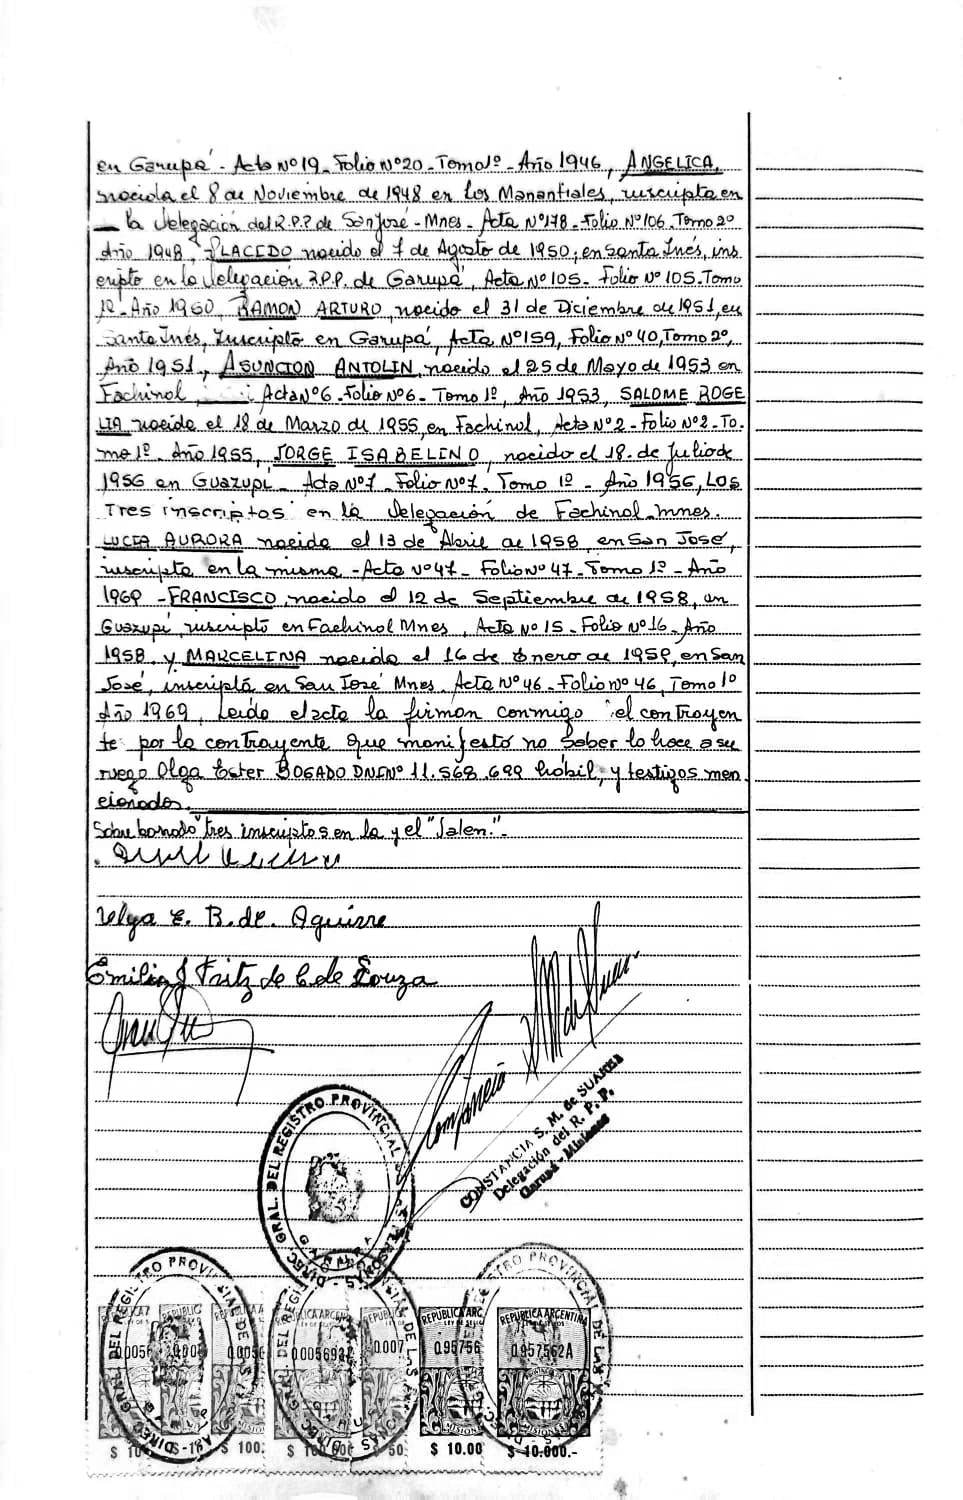 en Garupá - Acta Nº 19 - Folio Nº 20 - Tomo 1º - Año 1946, ANGELICA,
nacida el 8 de Noviembre de 1948 en los Manantiales, inscripta en
la Delegación del R.P.P. de San José - Mnes - Acta Nº 178 - Folio Nº 106 - Tomo 2º
Año 1948, PLACEDO nacido el 7 de Agosto de 1950, en Santa Inés, ins
cripto en la Delegación R.P.P. de Garupá, Acta Nº 105 - Folio Nº 105 - Tomo
1º - Año 1950, RAMON ARTURO, nacido el 31 de Diciembre de 1951, en
Santa Inés, Inscripto en Garupá, Acta Nº 159, Folio Nº 40, Tomo 2º,
Año 1951., ASUNCION ANTOLIN, nacido el 25 de Mayo de 1953 en
Fachinol, Acta Nº 6 - Folio Nº 6 - Tomo 1º, Año 1953, SALOME ROGE
LIA nacida el 18 de Marzo de 1955, en Fachinol, Acta Nº 2 - Folio Nº 2 - To.
mo 1º - Año 1955, JORGE ISABELINO, nacido el 18. de Julio de
1956 en Guazupí - Acta Nº 7 - Folio Nº 7 - Tomo 1º - Año 1956, LOS
Tres inscriptos en la Delegación de Fachinol - Mnes.
LUCIA AURORA nacida el 13 de Abril de 1958, en San José,
inscripta en la misma - Acta Nº 47 - Folio Nº 47 - Tomo 1º - Año
1969 - FRANCISCO, nacido el 12 de Septiembre de 1958, en
Guazupí, inscripto en Fachinol Mnes, Acta Nº 15 - Folio Nº 16 - Año
1958, y MARCELINA nacida el 16 de Enero de 1959, en San
José, inscripta en San José Mnes. Acta Nº 46 - Folio Nº 46, Tomo 1º
Año 1969, Leída el acta la firman conmigo el contrayen
te por la contrayente que manifestó no saber lo hace a su
ruego Olga Ester BOGADO DNI Nº 11.568.699 hábil, y testigos men
cionados.
Sobre borrado "tres inscriptos en la y el "Valen." -
Olga E. B. de. Aguirre
Emilia J Fritz de C de Souza
CONSTANCIA S. M. de SUAREZ
Delegación del R. P. P.
Garupá - Misiones
DIREC. GRAL. DEL REGISTRO PROVINCIAL DE LAS PERSONAS
GARUPA
REPUBLICA ARGENTINA
0957562A
$ 100.
$ 10.00
$ 10.000.-